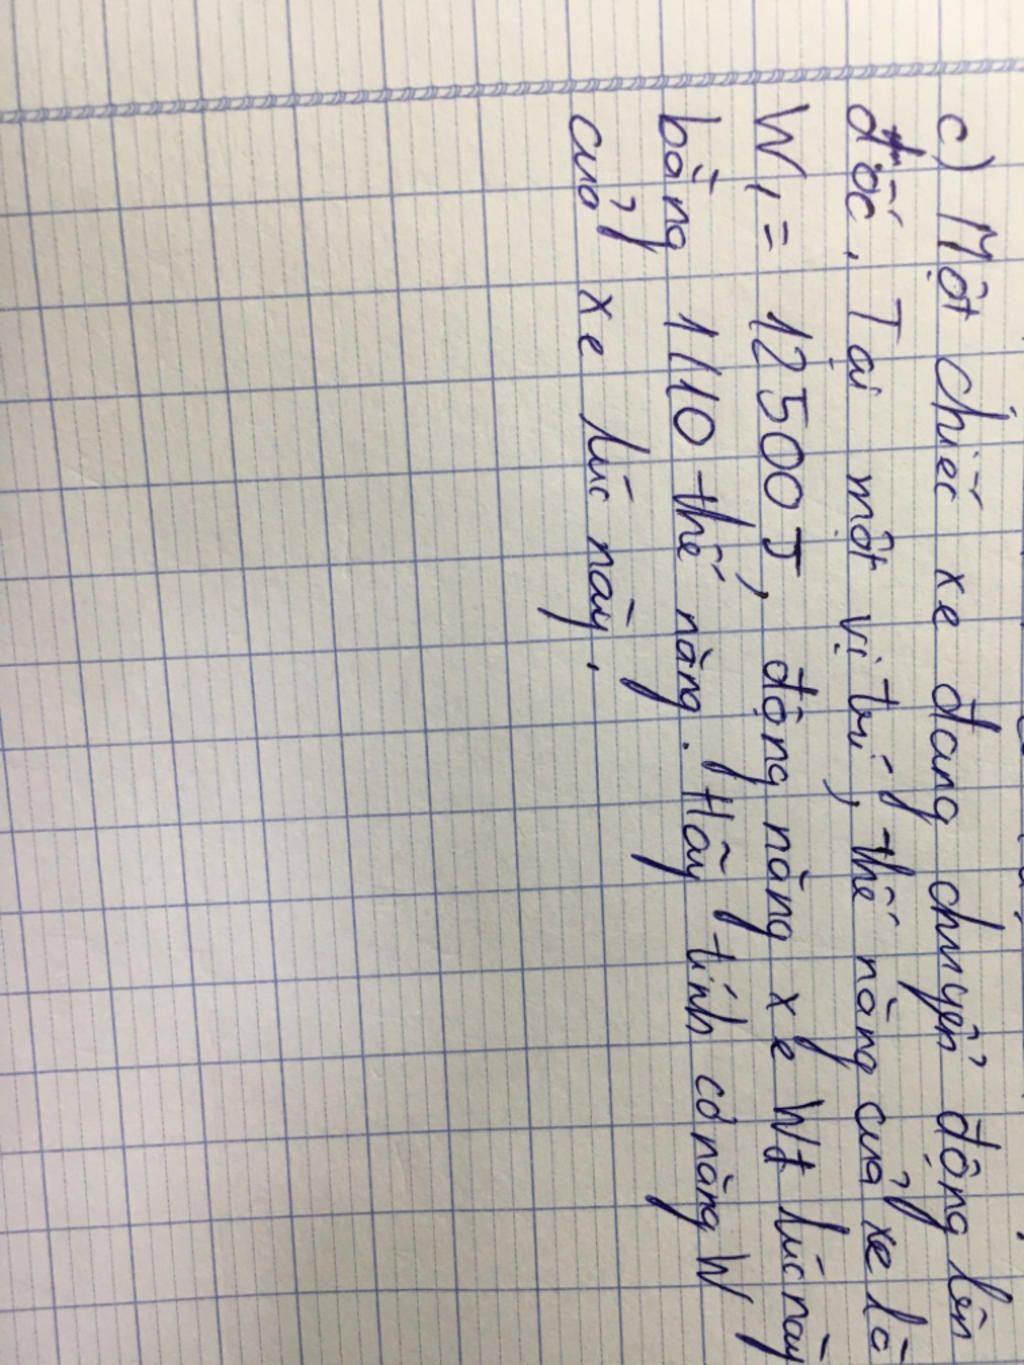 c) Một chiếc xe đang chuyển động lên
đốc. Tại một vị trí, thế năng của xe là
W₁ = 12500J, động năng xe Wđ lúc này
bằng 1/10 thế năng. Hãy tính cơ năng W
của xe lúc này.